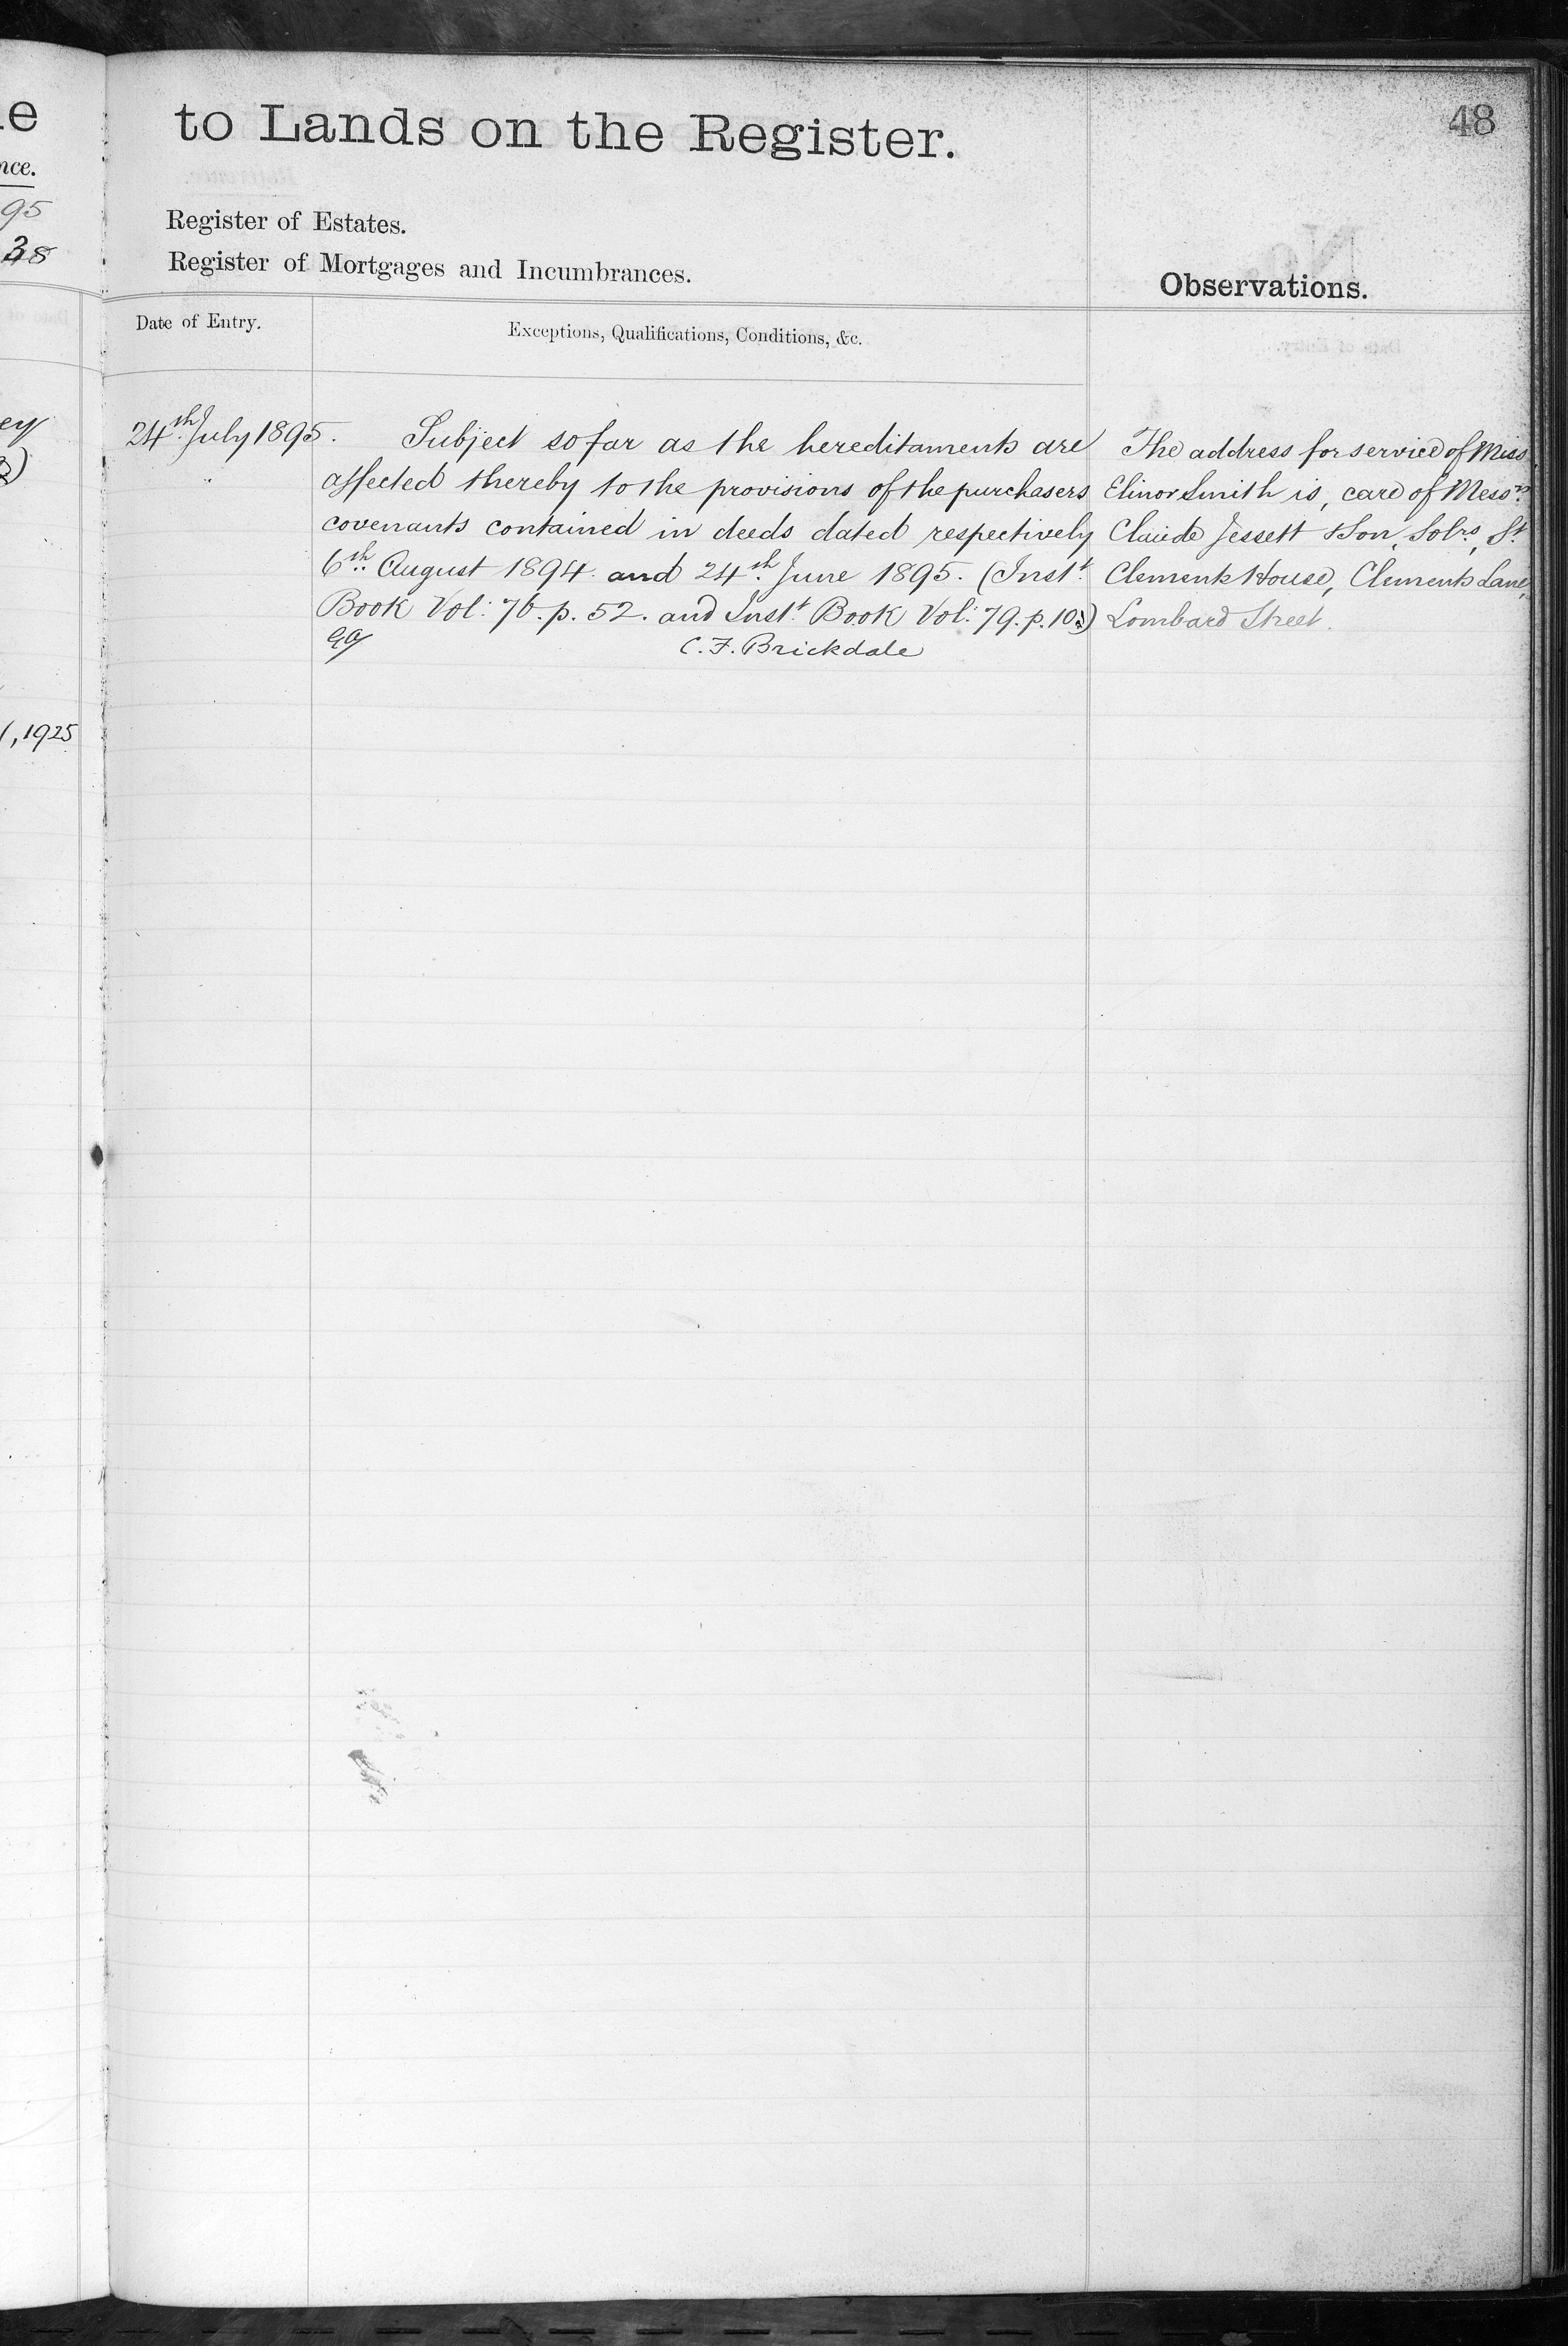 e
to Lands on the Register.
48
nce.
95
Register of Estates.
38
Register of Mortgages and Incumbrances.
Observations.
Date of Entry.
Exceptions, Qualifications, Conditions, &c.
ey
24th July 1895.
Subject so far as the hereditaments are
affected thereby to the provisions of the purchasers
covenants contained in deeds dated respectively
6th August 1894 and 24th June 1895. (Instt
Book Vol: 76. p. 52. and Instt Book Vol: 79. p.
C. F. Brickdale
The address for service of Miss
Elinor Smith is, care of Messrs
Claude Jessett & Son, Solrs, St
Clements House, Clements Lane,
Lombard Street.
, 1925